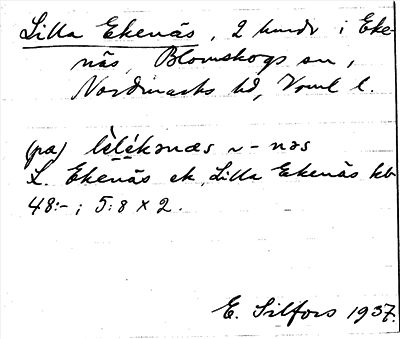 Lilla Ekenäs, 2 hmdr i Eke-
näs, Blomskogs sn,
Nordmarks hd, Vrml l.
(på) lìlékənæs ~ -nəs
L. Ekenäs ek, Lilla Ekenäs kb
48:- ; 5:8 x 2.
E. Silfors 1937.